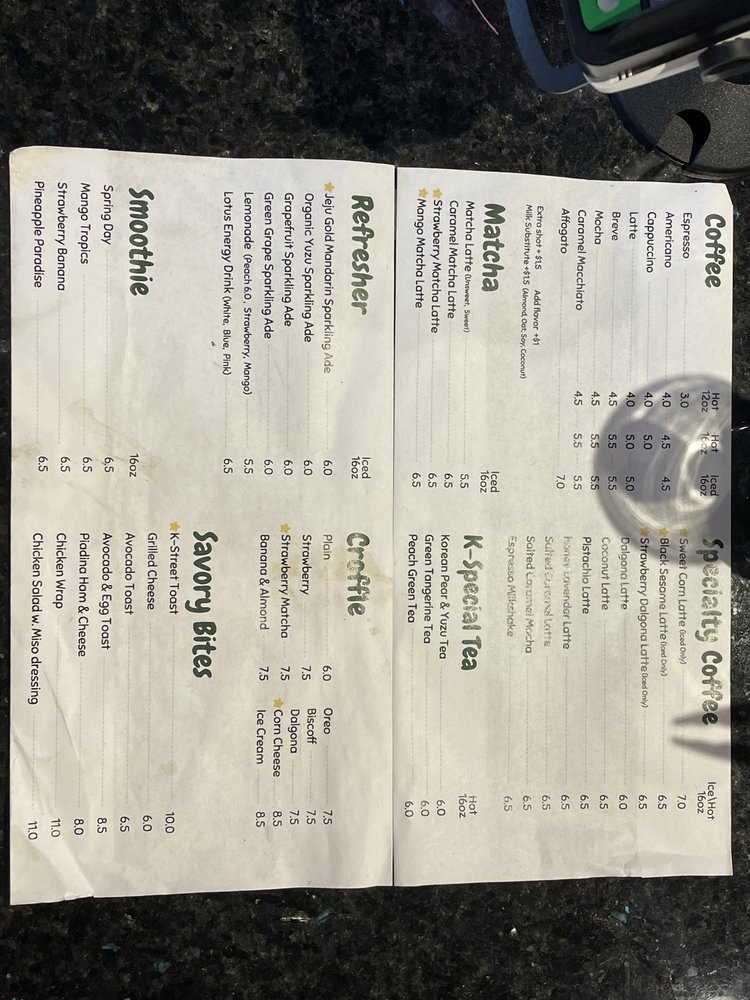 Coffee
Hot 12oz Hot 16oz Iced 16oz
Espresso 3.0
Americana 4.0 4.5 4.5
Cappuccino 4.0 5.0
Latte 4.0 5.0 5.0
Breve 4.5 5.5 5.5
Mocha 4.5 5.5 5.5
Caramel Macchiato 4.5 5.5 5.5
Affogato 7.0
Extra shot + $1.5 Add flavor +$1
Milk Substitute +$1.5 (Almond, Oat, Soy, Coconut)
Matcha
Iced 16oz
Matcha Latte (Unsweet, Sweet) 5.5
Caramel Matcha Latte 6.5
Strawberry Matcha Latte 6.5
Mango Matcha Latte 6.5
Specialty Coffee
Ice\Hot 16oz
Sweet Corn Latte (Iced Only) 7.0
Black Sesame Latte (Iced Only) 6.5
Strawberry Dalgona Latte (Iced Only) 6.5
Dalgona Latte 6.0
Coconut Latte 6.5
Pistachio Latte 6.5
Honey Lavender Latte 6.5
Salted Caramel Latte 6.5
Salted Caramel Mocha 6.5
Espresso Milkshake 6.5
K-Special Tea
Hot 16oz
Korean Pear & Yuzu Tea 6.0
Green Tangerine Tea 6.0
Peach Green Tea 6.0
Refresher
Iced 16oz
Jeju Gold Mandarin Sparkling Ade 6.0
Organic Yuzu Sparkling Ade 6.0
Grapefruit Sparkling Ade 6.0
Green Grape Sparkling Ade 6.0
Lemonade (Peach 6.0, Strawberry, Mango) 5.5
Lotus Energy Drink (White, Blue, Pink) 6.5
Smoothie
16oz
Spring Day 6.5
Mango Tropics 6.5
Strawberry Banana 6.5
Pineapple Paradise 6.5
Croffle
Plain 6.0 Oreo 7.5
Strawberry 7.5 Biscoff 7.5
Strawberry Matcha 7.5 Dalgona 7.5
Corn Cheese 8.5
Banana & Almond 7.5 Ice Cream 8.5
Savory Bites
K-Street Toast 10.0
Grilled Cheese 6.0
Avocado Toast 6.5
Avocado & Egg Toast 8.5
Piadina Ham & Cheese 8.0
Chicken Wrap 11.0
Chicken Salad w. Miso dressing 11.0